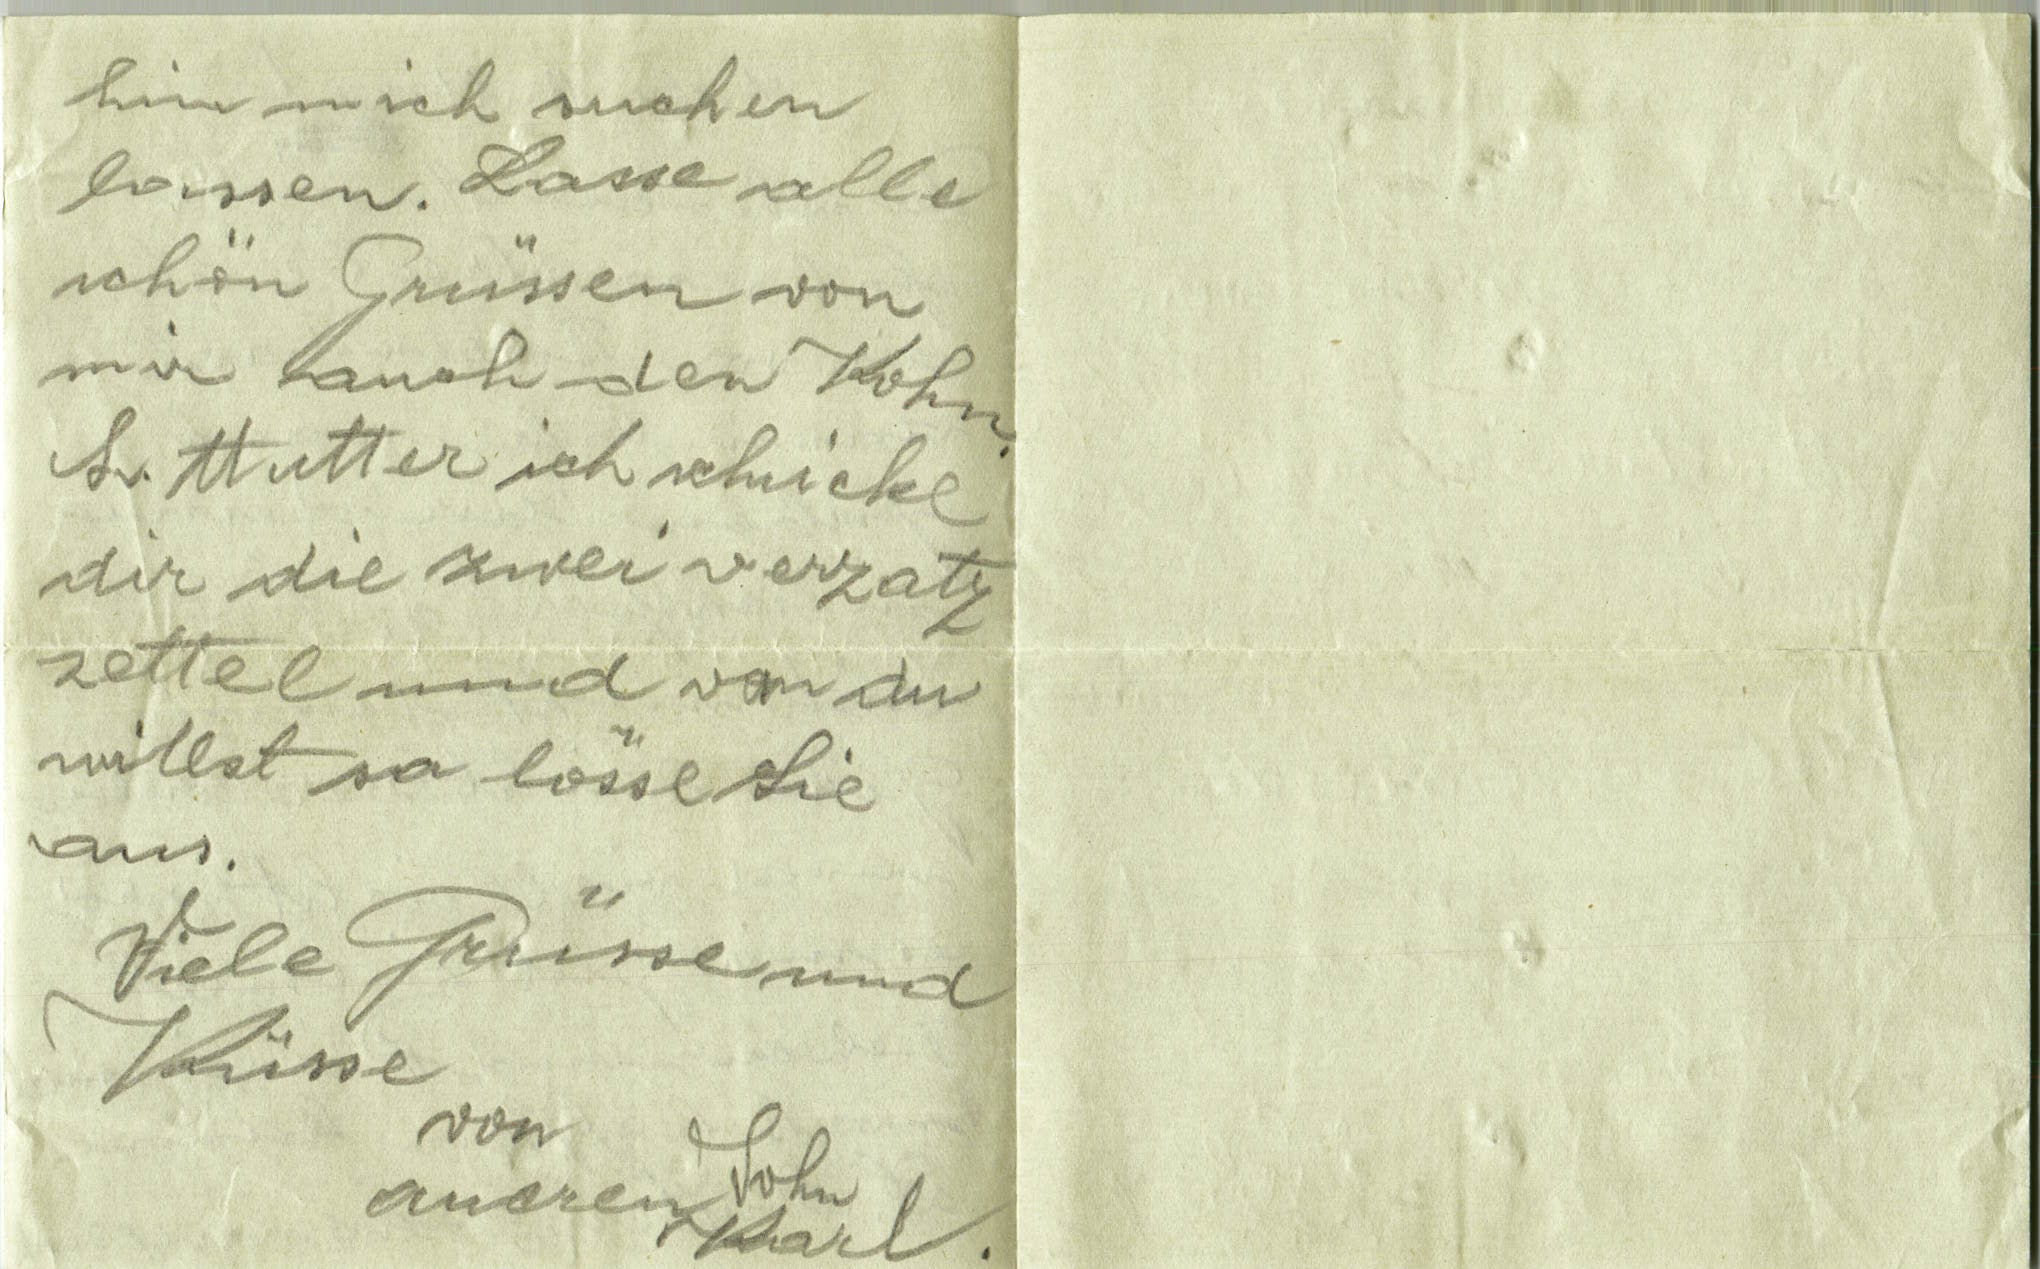 hin mich suchen
lassen. Lasse alle
schön Grüssen von
mir auch den Kohn.
L. Mutter ich schicke
dir die zwei verzatz
zettel und wan du
willst so lösse Sie
aus.
Viele Grüsse und
Küsse
von
aueren Sohn
Karl.